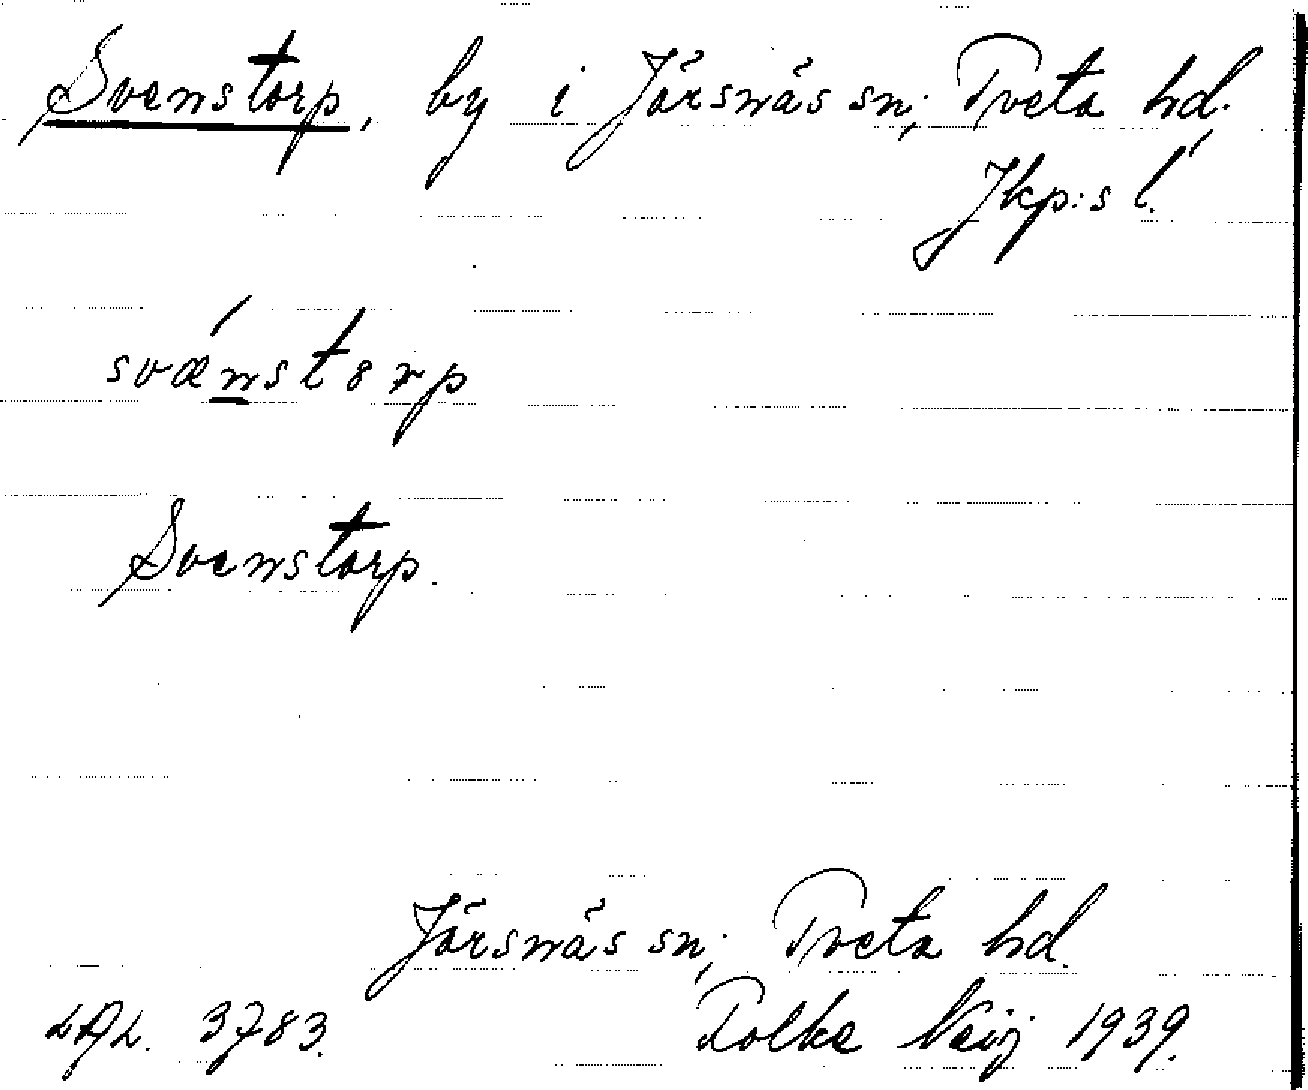 Svenstorp, by i Järsnäs sn; Tveta hd.
Jkp:s l.
svænstorp
Svenstorp.
Järsnäs sn; Tveta hd.
3783. Folke Neij 1939.